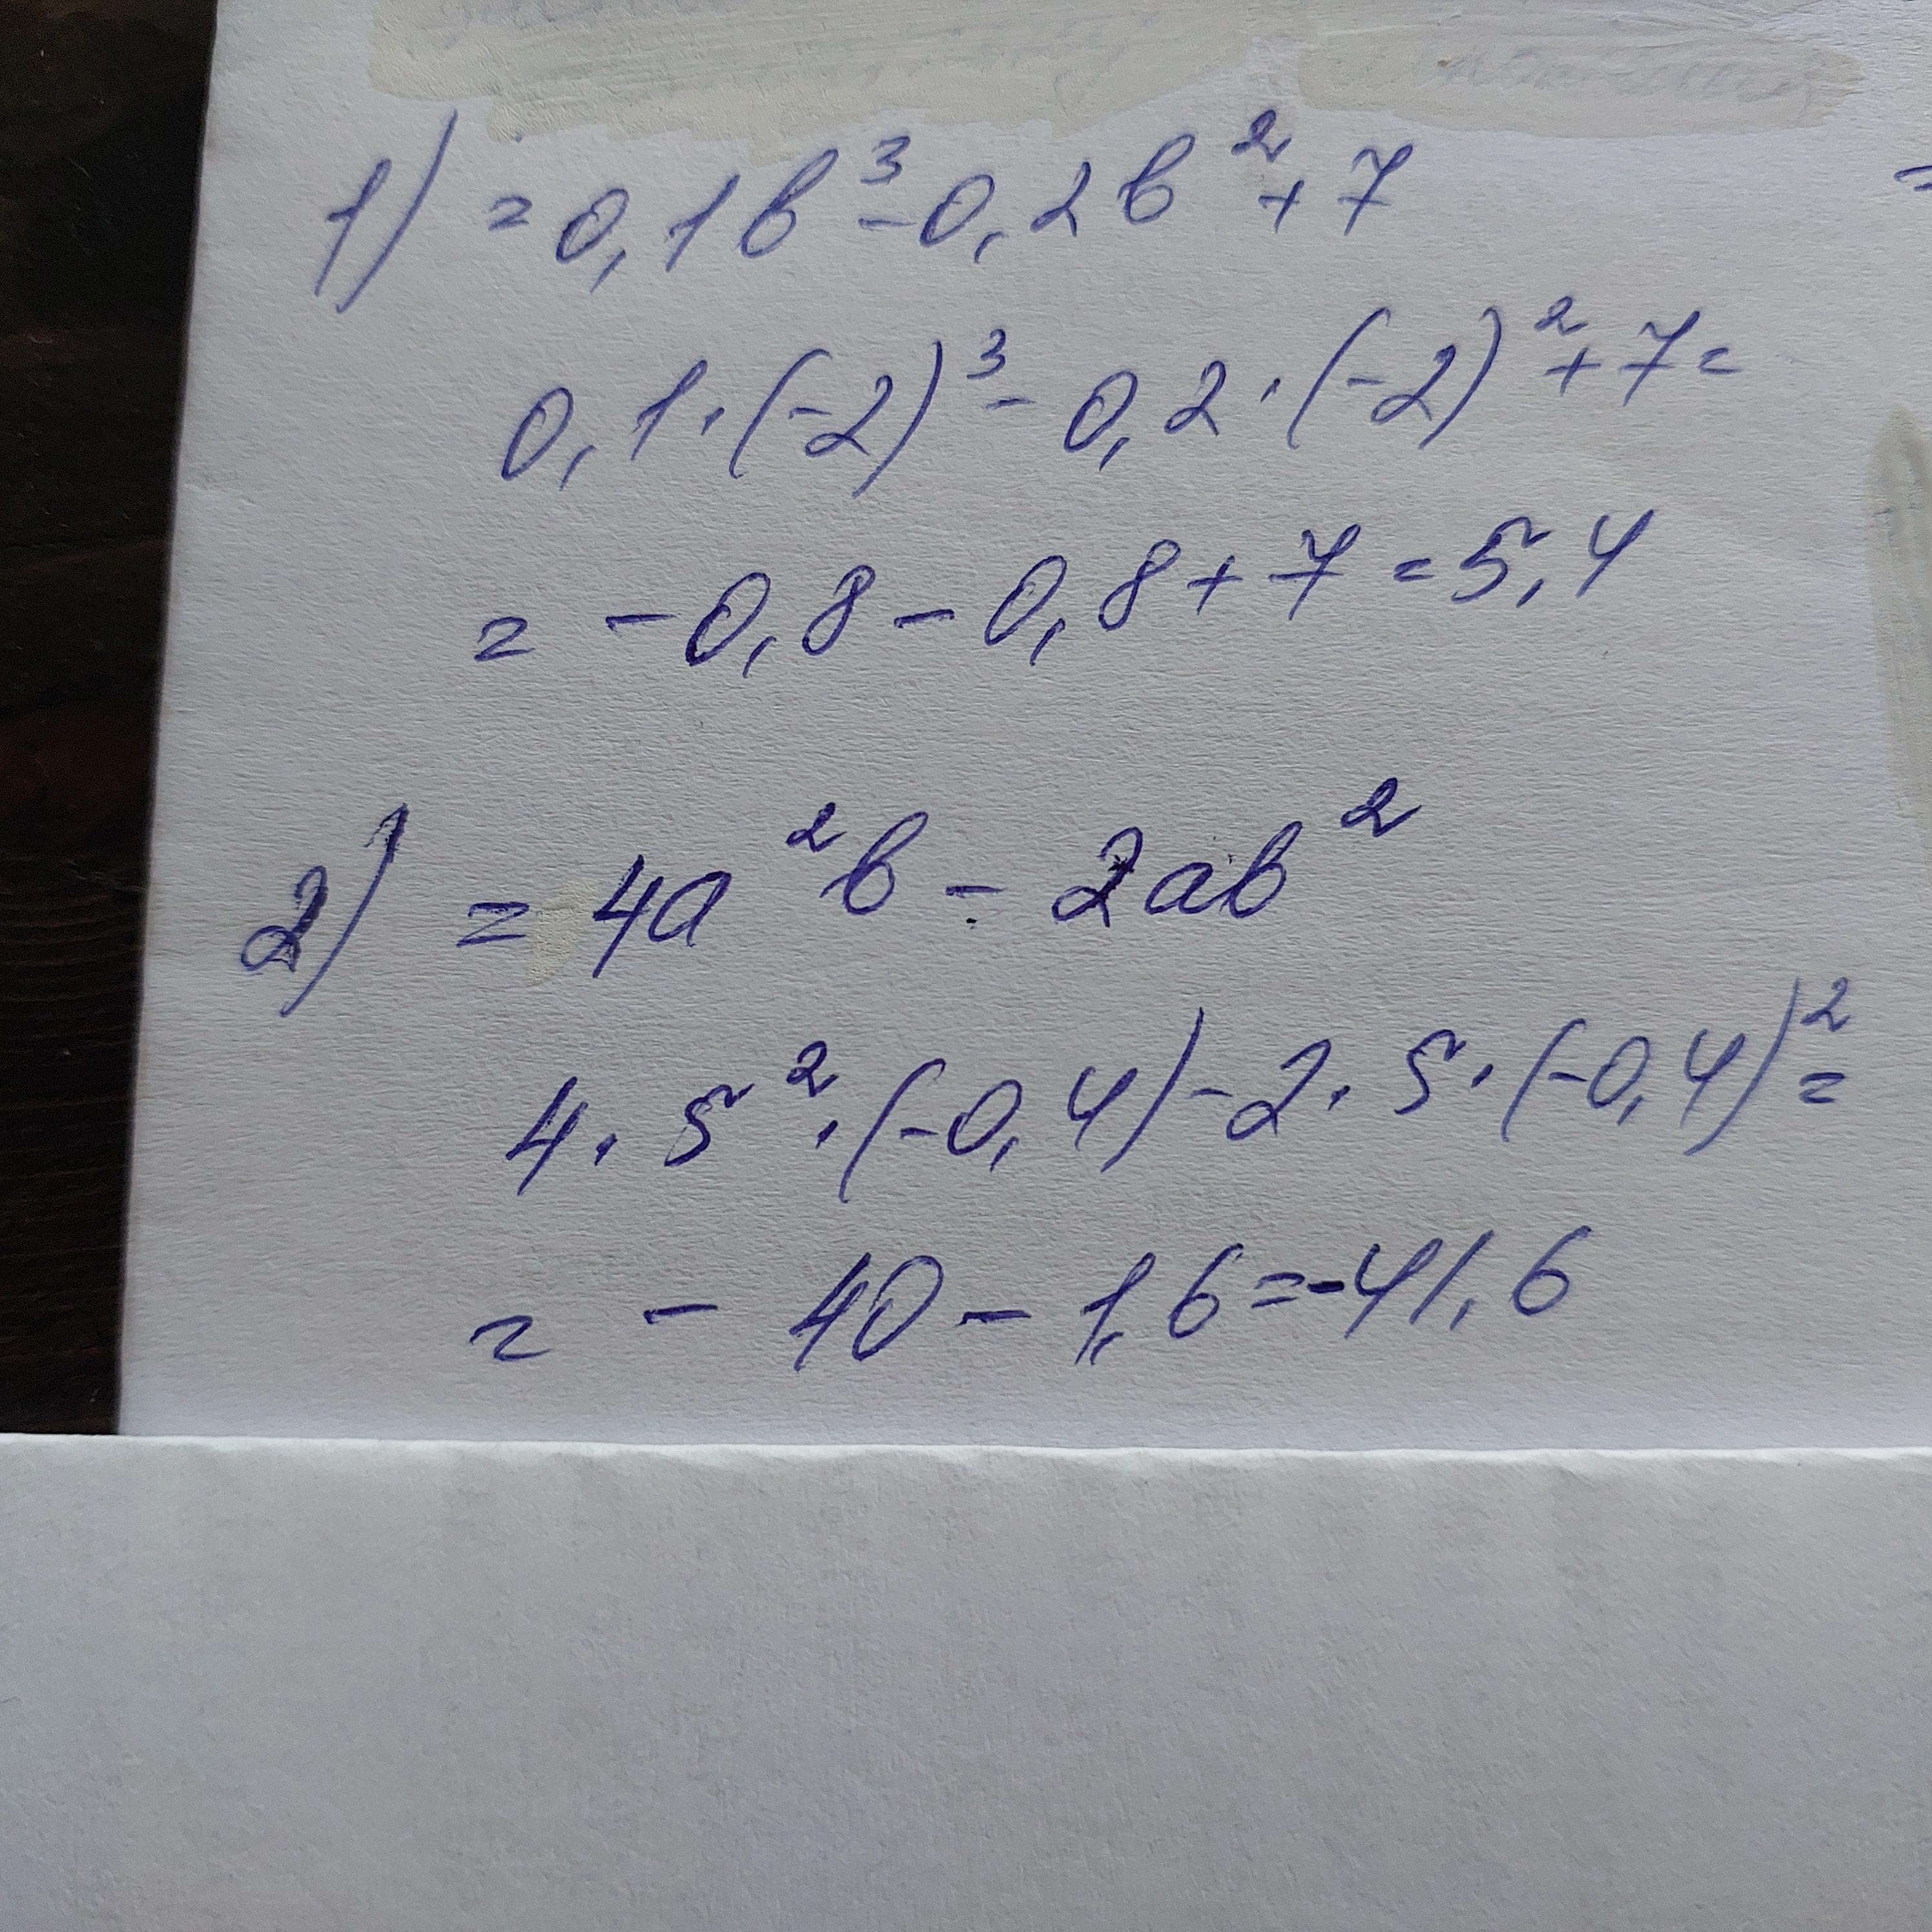 1) = 0,1b³ - 0,2b² + 7
0,1 · (-2)³ - 0,2 · (-2)² + 7 =
= - 0,8 - 0,8 + 7 = 5,4
2) = 4a²b - 2ab²
4 · 5² · (-0,4) - 2 · 5 · (-0,4)² =
= - 40 - 1,6 = -41,6